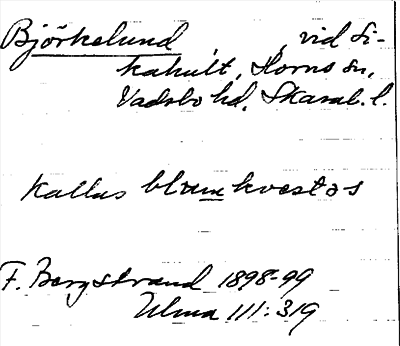 Björkelund, vid Si-
kahult, Horns sn,
Vadsbo hd, Skarab. l.
Kallas blumkvestəs
F. Bergstrand 1898-99
Ulma 111:319